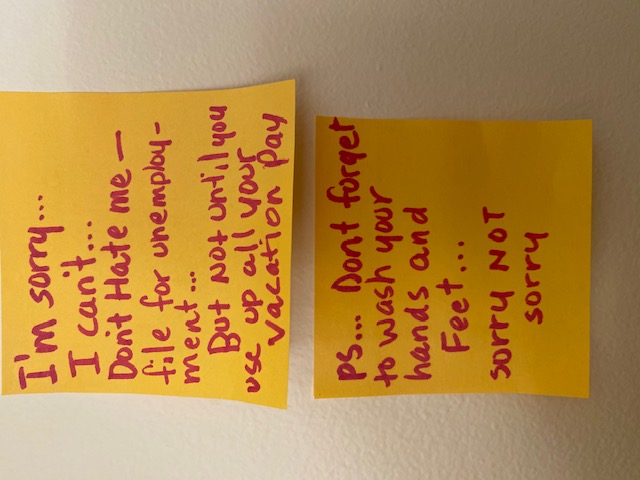 I'm sorry...
I can't...
Don't Hate me —
file for unemploy-
ment...
But Not until you
use up all your
vacation pay
ps... Dont forget
to wash your
hands and
Feet...
sorry NOT
sorry